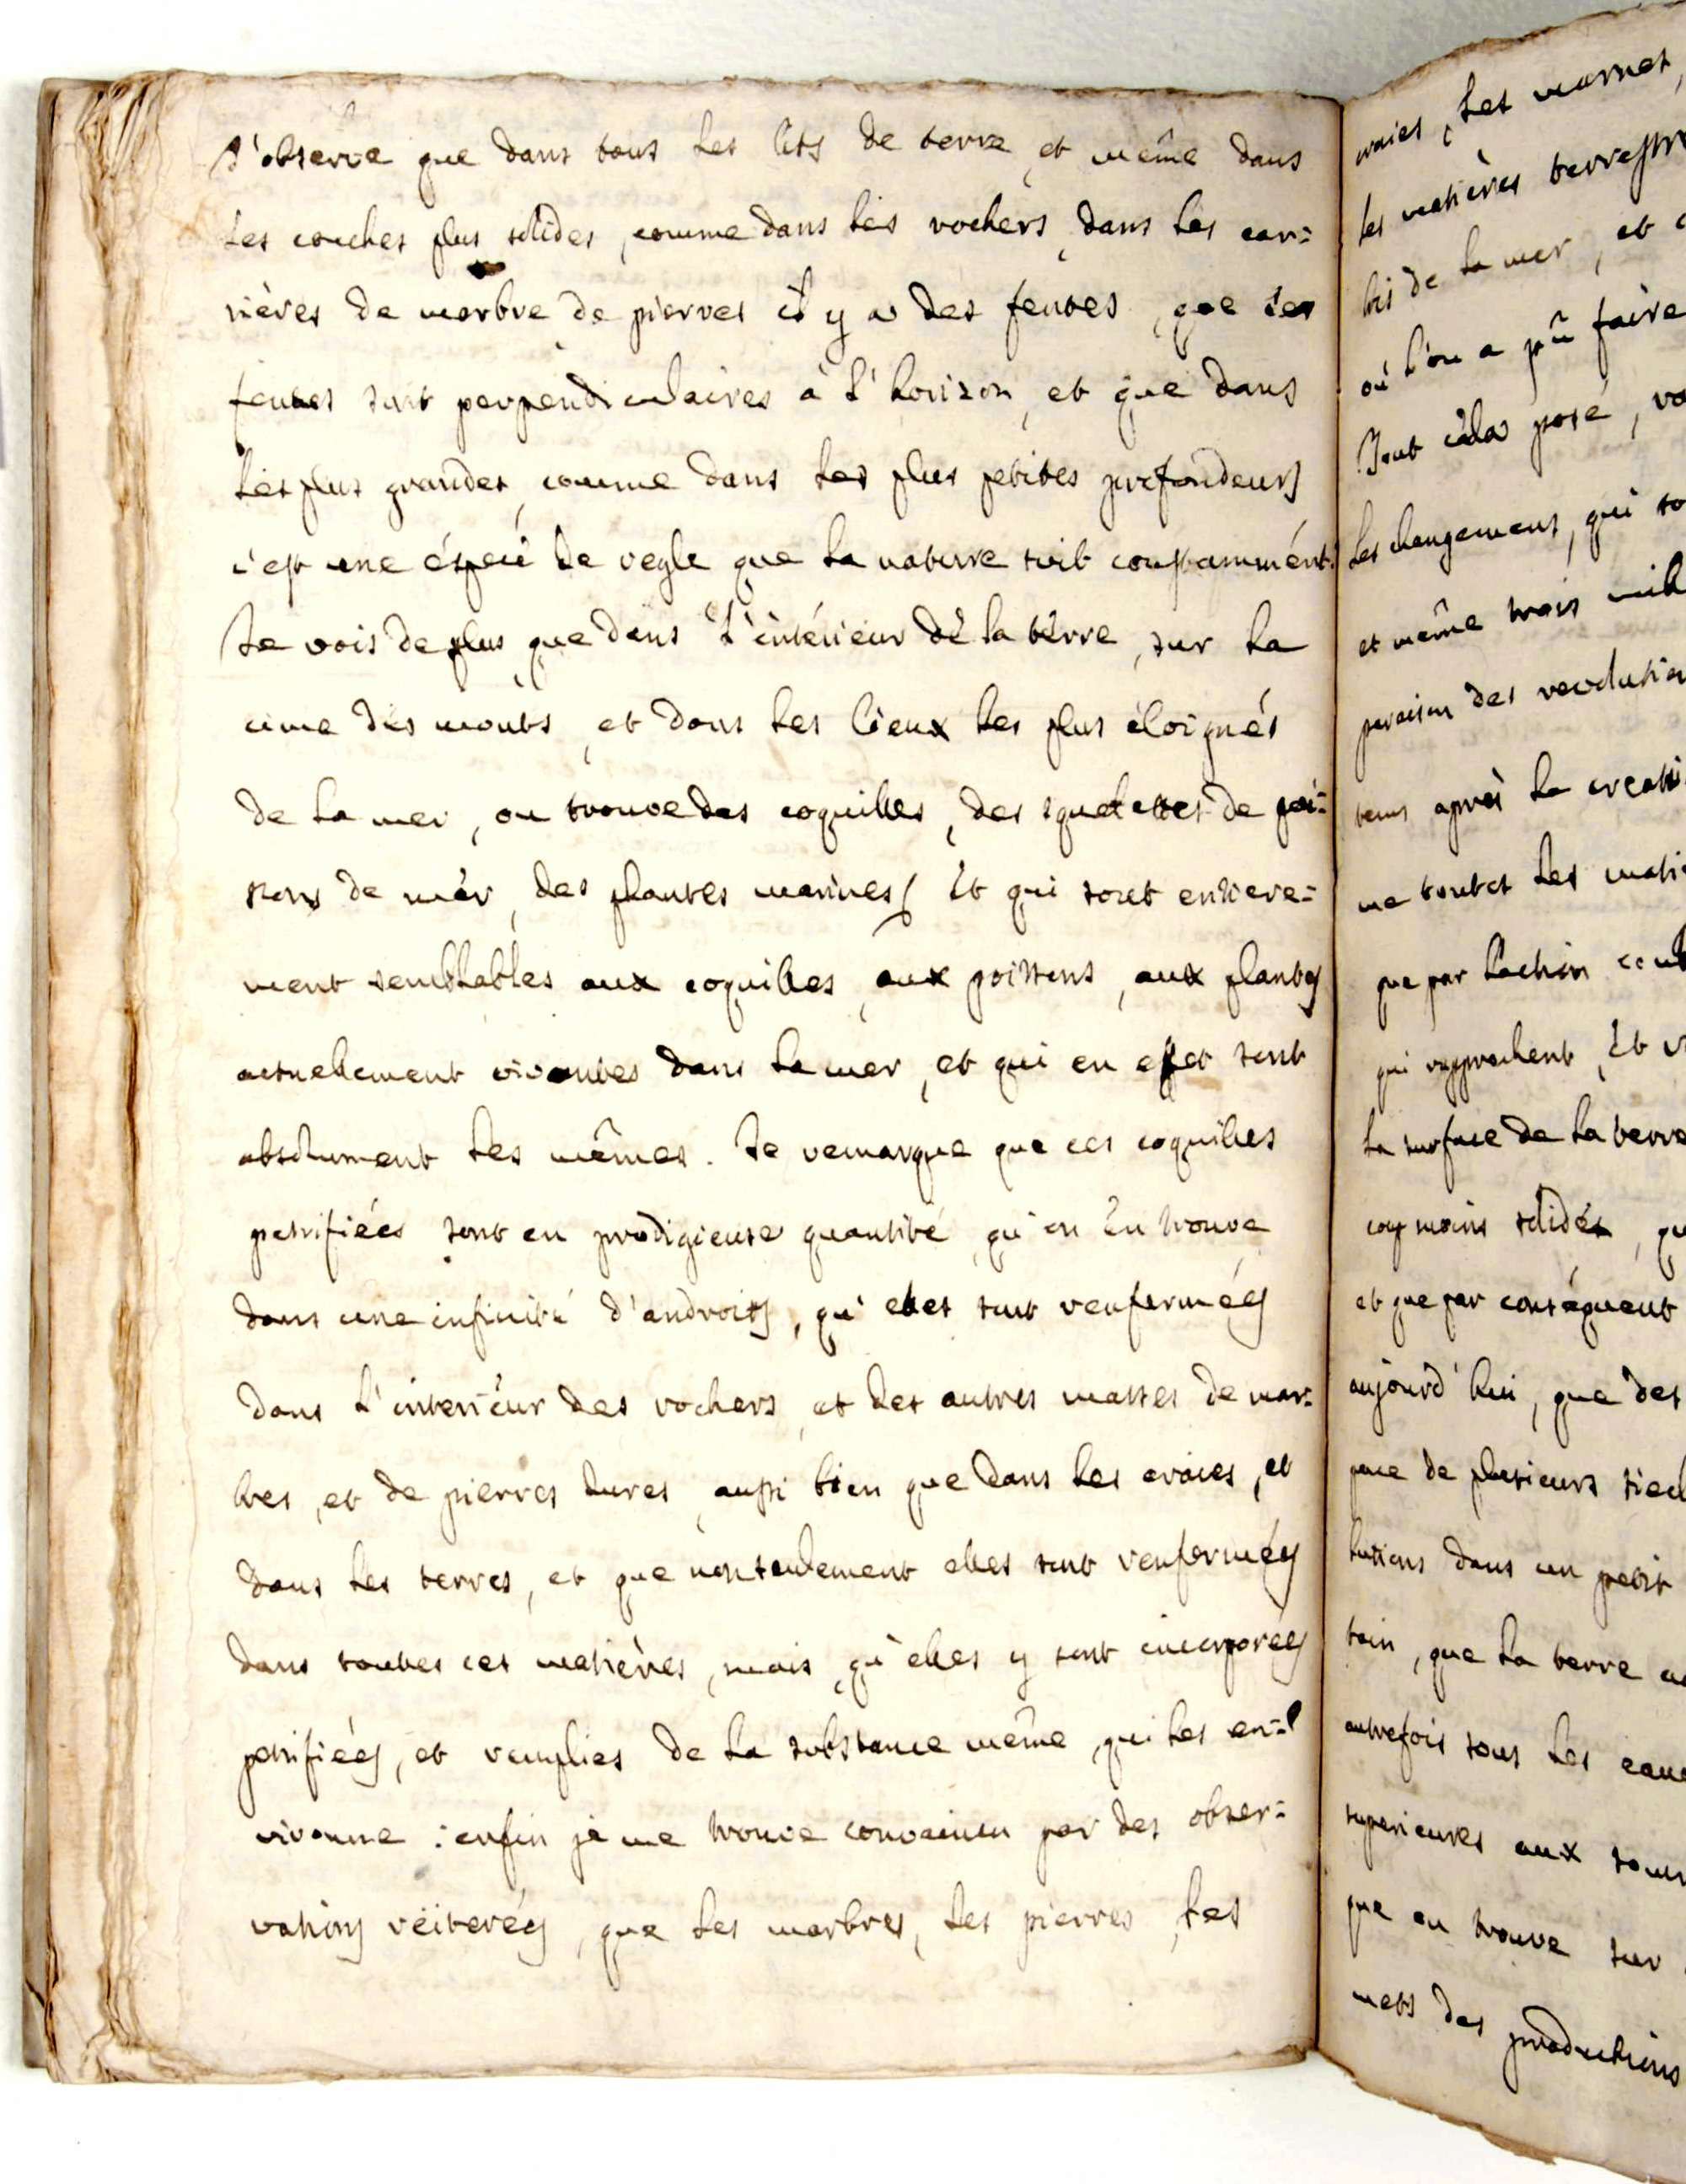 J'observe que dans tous les lits de terre, et même dans
les couches plus solides, comme dans les rochers, dans les car=
rières de marbre, de pierres il y a des fentes, que ces
fentes sont perpendiculaires à l'horizon, et que dans
les plus grandes, comme dans les plus petites profondeurs
c'est une éspece de regle que la nature suit constamment.
Je vois de plus, que dans l'intérieur de la terre, sur la
cime des monts, et dans les lieux les plus éloignés
de la mer, on trouve des coquilles, des squelettes de poi=
ssons de mer, des plantes marines, et qui sont entiere=
ment semblables aux coquilles, aux poissons, aux plantes
actuellement vivantes dans la mer, et qui en effet sont
absolument les mêmes. Je remarque que ces coquilles
petrifiées sont en prodigieuse quantité, qu'on en trouve
dans une infinité d'androits, qu'elles sont renfermées
dans l'interieur des rochers, et des autres masses de mar=
bres, et de pierres dures, aussi bien que dans les craies, et
dans les terres, et que non seulement elles sont renfermées
dans toutes ces matières, mais, qu'elles y sont incorporées
petrifiées, et remplies de la substance même, qui les en=
vironne : enfin je me trouve convaincu par des obser=
vations réiterées, que les marbres, les pierres, les
craies, les marnes,
les matières terrestr
bis de la mer, et
où l'on a pû faire
Tout cela posé,
les changemens, qui
et même trois mill
paraison des revolution
tems après la creati
me toutes les mati
que par l'action
qui rapprochent, et
la surface de la terre
coup moins solides, qu
et que par conséquent
aujourd'hui, que des
pace de plusieurs siecl
lutions dans un petit
tain, que la terre
autrefois sous les eaux
superieures aux
que on trouve sur
mets des productions